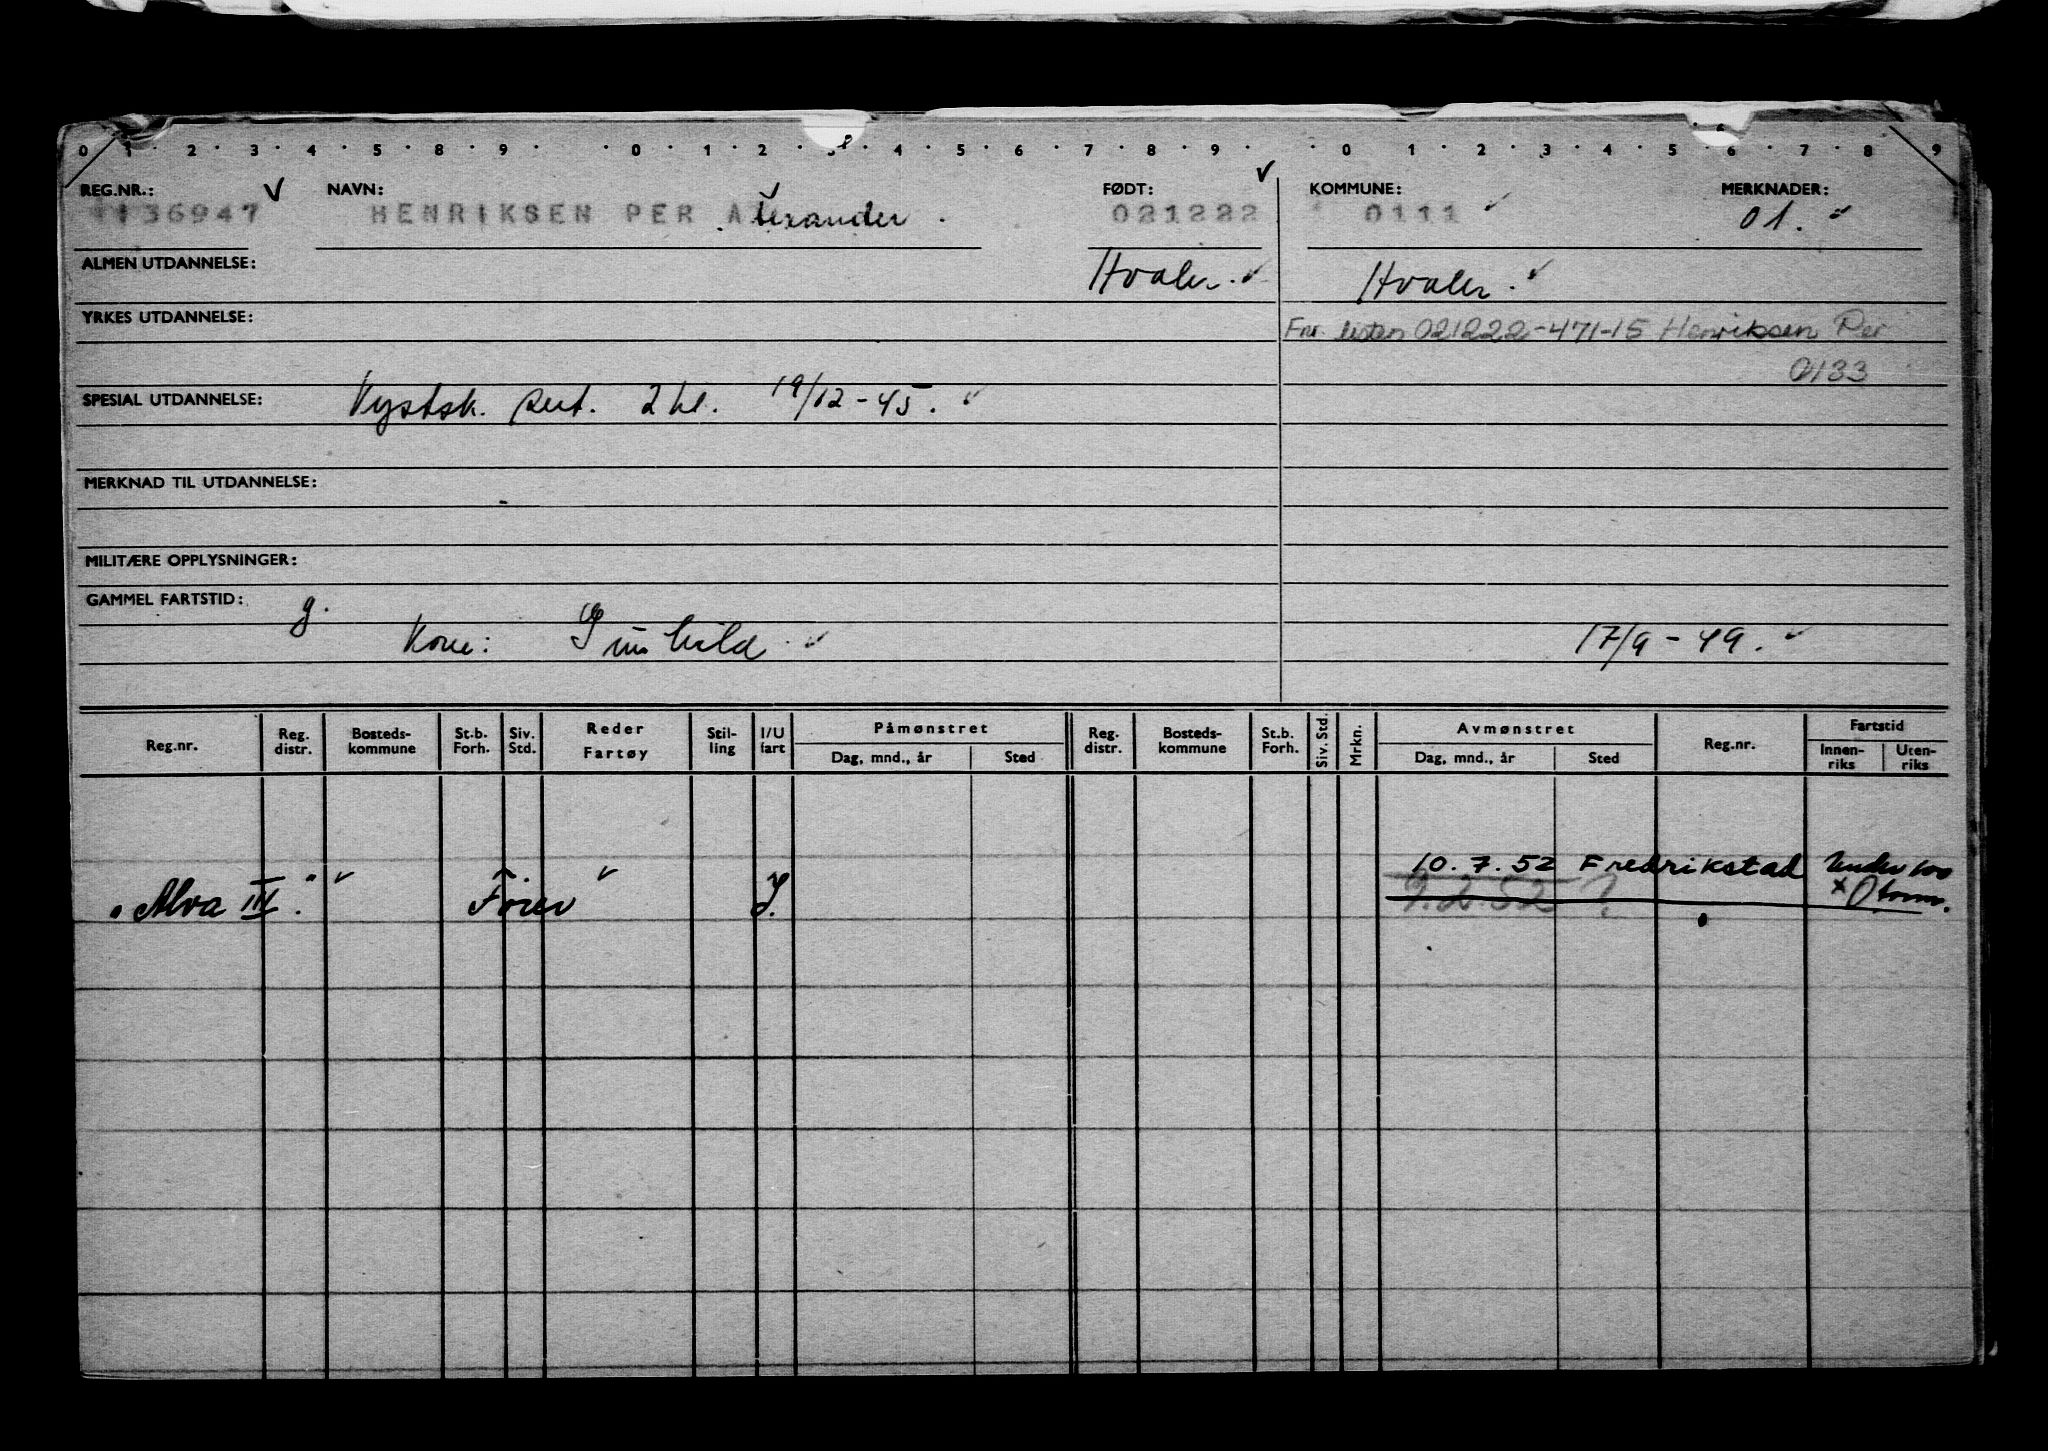 0 1 2 3 4 5 8 9 0 1 2 3 4 5 6 7 8 9 0 1 2 3 4 5 6 7 8 9
REG.NR.: NAVN: FØDT: KOMMUNE: MERKNADER:
1136947 HENRIKSEN PER Alexander 021222 0111 01.
ALMEN UTDANNELSE: Hvaler. Hvaler.
YRKES UTDANNELSE: Fnr. listen 021222-471-15 Henriksen Per
0133
SPESIAL UTDANNELSE: Kystsk. sert. 2 kl. 19/12-45.
MERKNAD TIL UTDANNELSE:
MILITÆRE OPPLYSNINGER:
GAMMEL FARTSTID: g.
Kone: Gunhild 17/9-49.
Reg.nr. Reg. distr. Bosteds-kommune St.b. Forh. Siv. Std. Reder Fartøy Stil-ling I/U fart Påmønstret Dag, mnd., år Sted Reg. distr. Bosteds-kommune St.b. Forh. Siv. Std. Mrkn. Avmønstret Dag, mnd., år Sted Reg.nr. Fartstid Innen-riks Uten-riks
10.7.52 Fredrikstad Under 100
"Alva III." Fører I. 9.2.52 ? tonn.